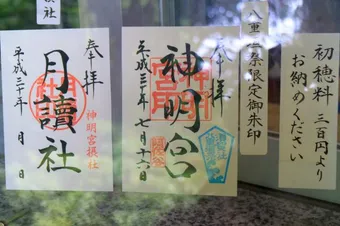 初穂料 三百円より
お納めください
八重一祭限定御朱印
奉拝
神明宮
平成三十年 七月十六日
奉拝
月讀社
神明宮摂社
平成三十年 月 日